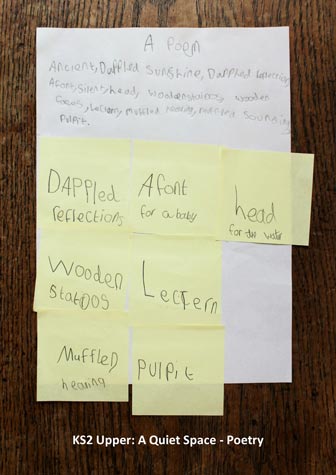 A Poem
Ancient, Dappled Sunshine, Dappled reflections
A font, Silent, head, wooden, wooden
faces, Lectern, Muffled hearing, muffled Sounding
pulpit.
DAPPled
reflections
A font
for a baby
head
for the water
Wooden
Lectern
Muffled
hearing
PulPit
KS2 Upper: A Quiet Space - Poetry